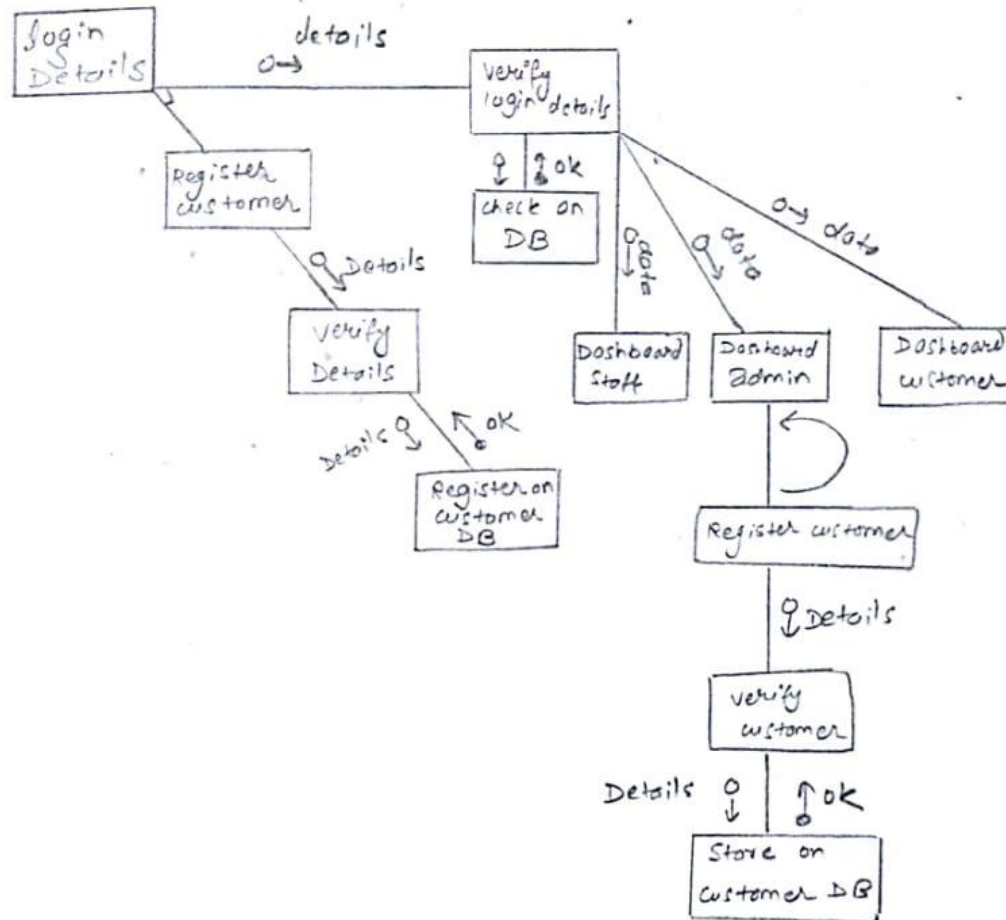 login
Details
details
verify
login details
Register
customer
ok
check on
DB
Details
data
data
data
verify
Details
Dashboard
Staff
Dashboard
admin
Dashboard
customer
Details
ok
Register on
customer
DB
Register customer
Details
verify
customer
Details
ok
Store on
customer DB